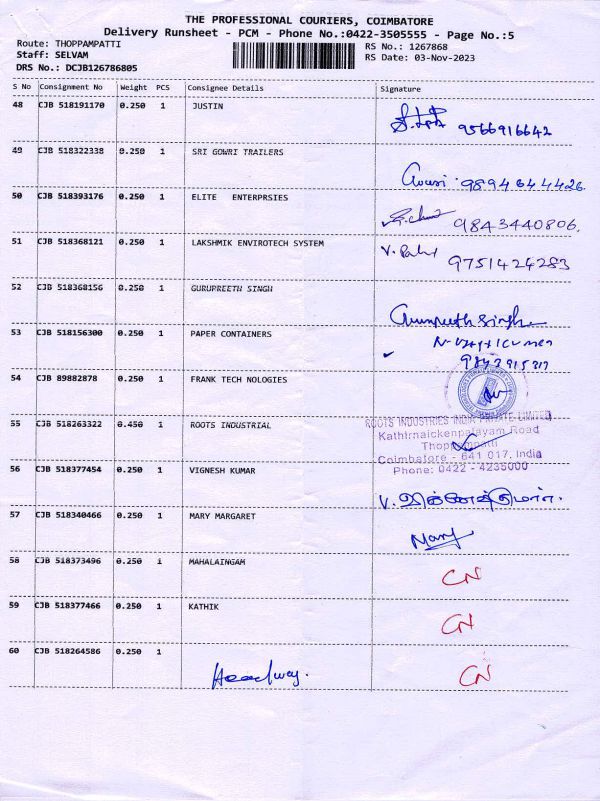 THE PROFESSIONAL COURIERS, COIMBATORE
Delivery Runsheet - PCM - Phone No.:0422-3505555 - Page No.:5
Route: THOPPAMPATTI
RS No.: 1267868
Staff: SELVAM
RS Date: 03-Nov-2023
DRS No.: DCJB126786805
S No Consignment No Weight PCS Consignee Details Signature
48 CJB 518191170 0.250 1 JUSTIN
9566916642
49 CJB 518322338 0.250 1 SRI GOWRI TRAILERS
Gowri 9894644426
50 CJB 518393176 0.250 1 ELITE ENTERPRSIES
9843440806.
51 CJB 518368121 0.250 1 LAKSHMIK ENVIROTECH SYSTEM
9751424283
52 CJB 518368156 0.250 1 GURUPREETH SINGH
Gurupreeth Singh
53 CJB 518156300 0.250 1 PAPER CONTAINERS
54 CJB 89882878 0.250 1 FRANK TECH NOLOGIES
55 CJB 518263322 0.450 1 ROOTS INDUSTRIAL
ROOTS INDUSTRIES INDIA PRIVATE LIMITED
Kathirnaickenpalayam Road
Coimbatore - 641 017, India
Phone: 0422 - 4235000
56 CJB 518377454 0.250 1 VIGNESH KUMAR
57 CJB 518340466 0.250 1 MARY MARGARET
Mary
58 CJB 518373496 0.250 1 MAHALAINGAM
CN
59 CJB 518377466 0.250 1 KATHIK
CN
60 CJB 518264586 0.250 1
Headway.
CN